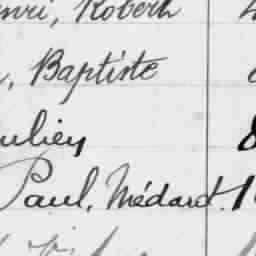 nri, Robert
, Baptiste
ulien 8
Paul, Médard. 1